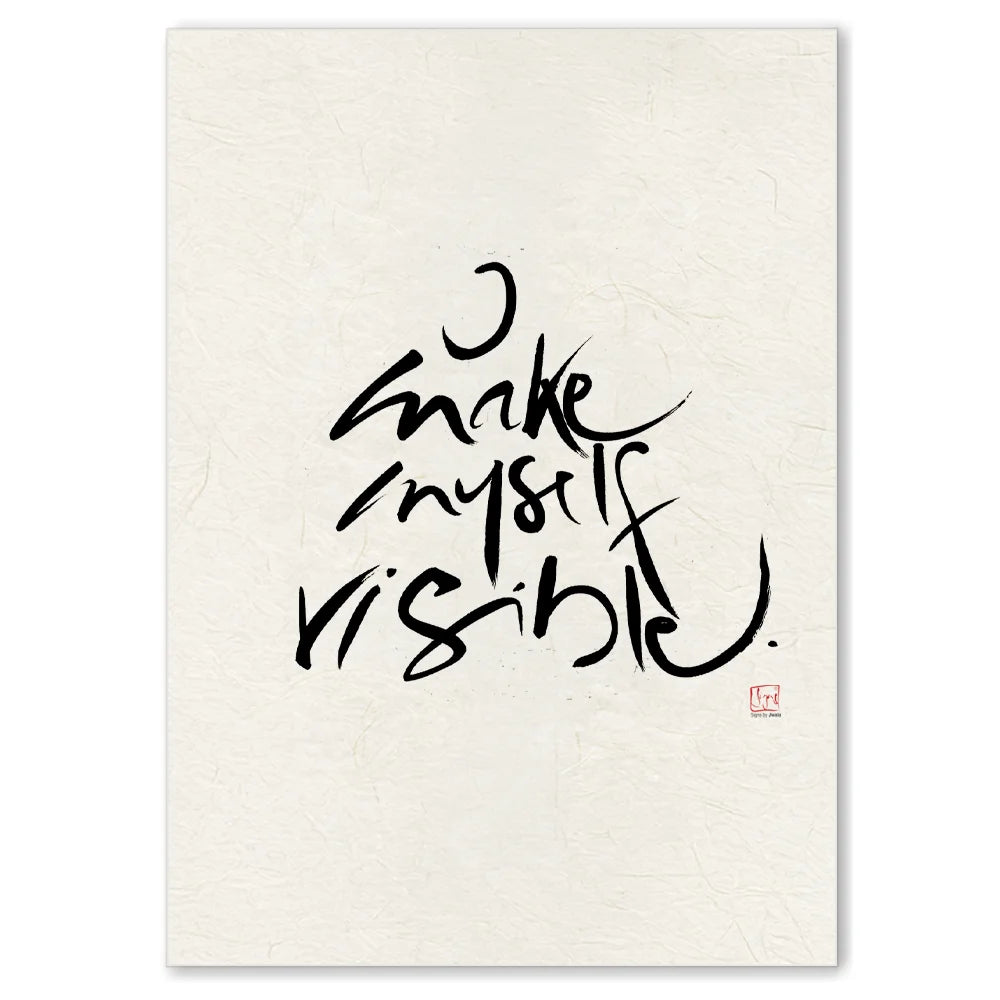 I
make
myself
visible.
Signs by Jwala